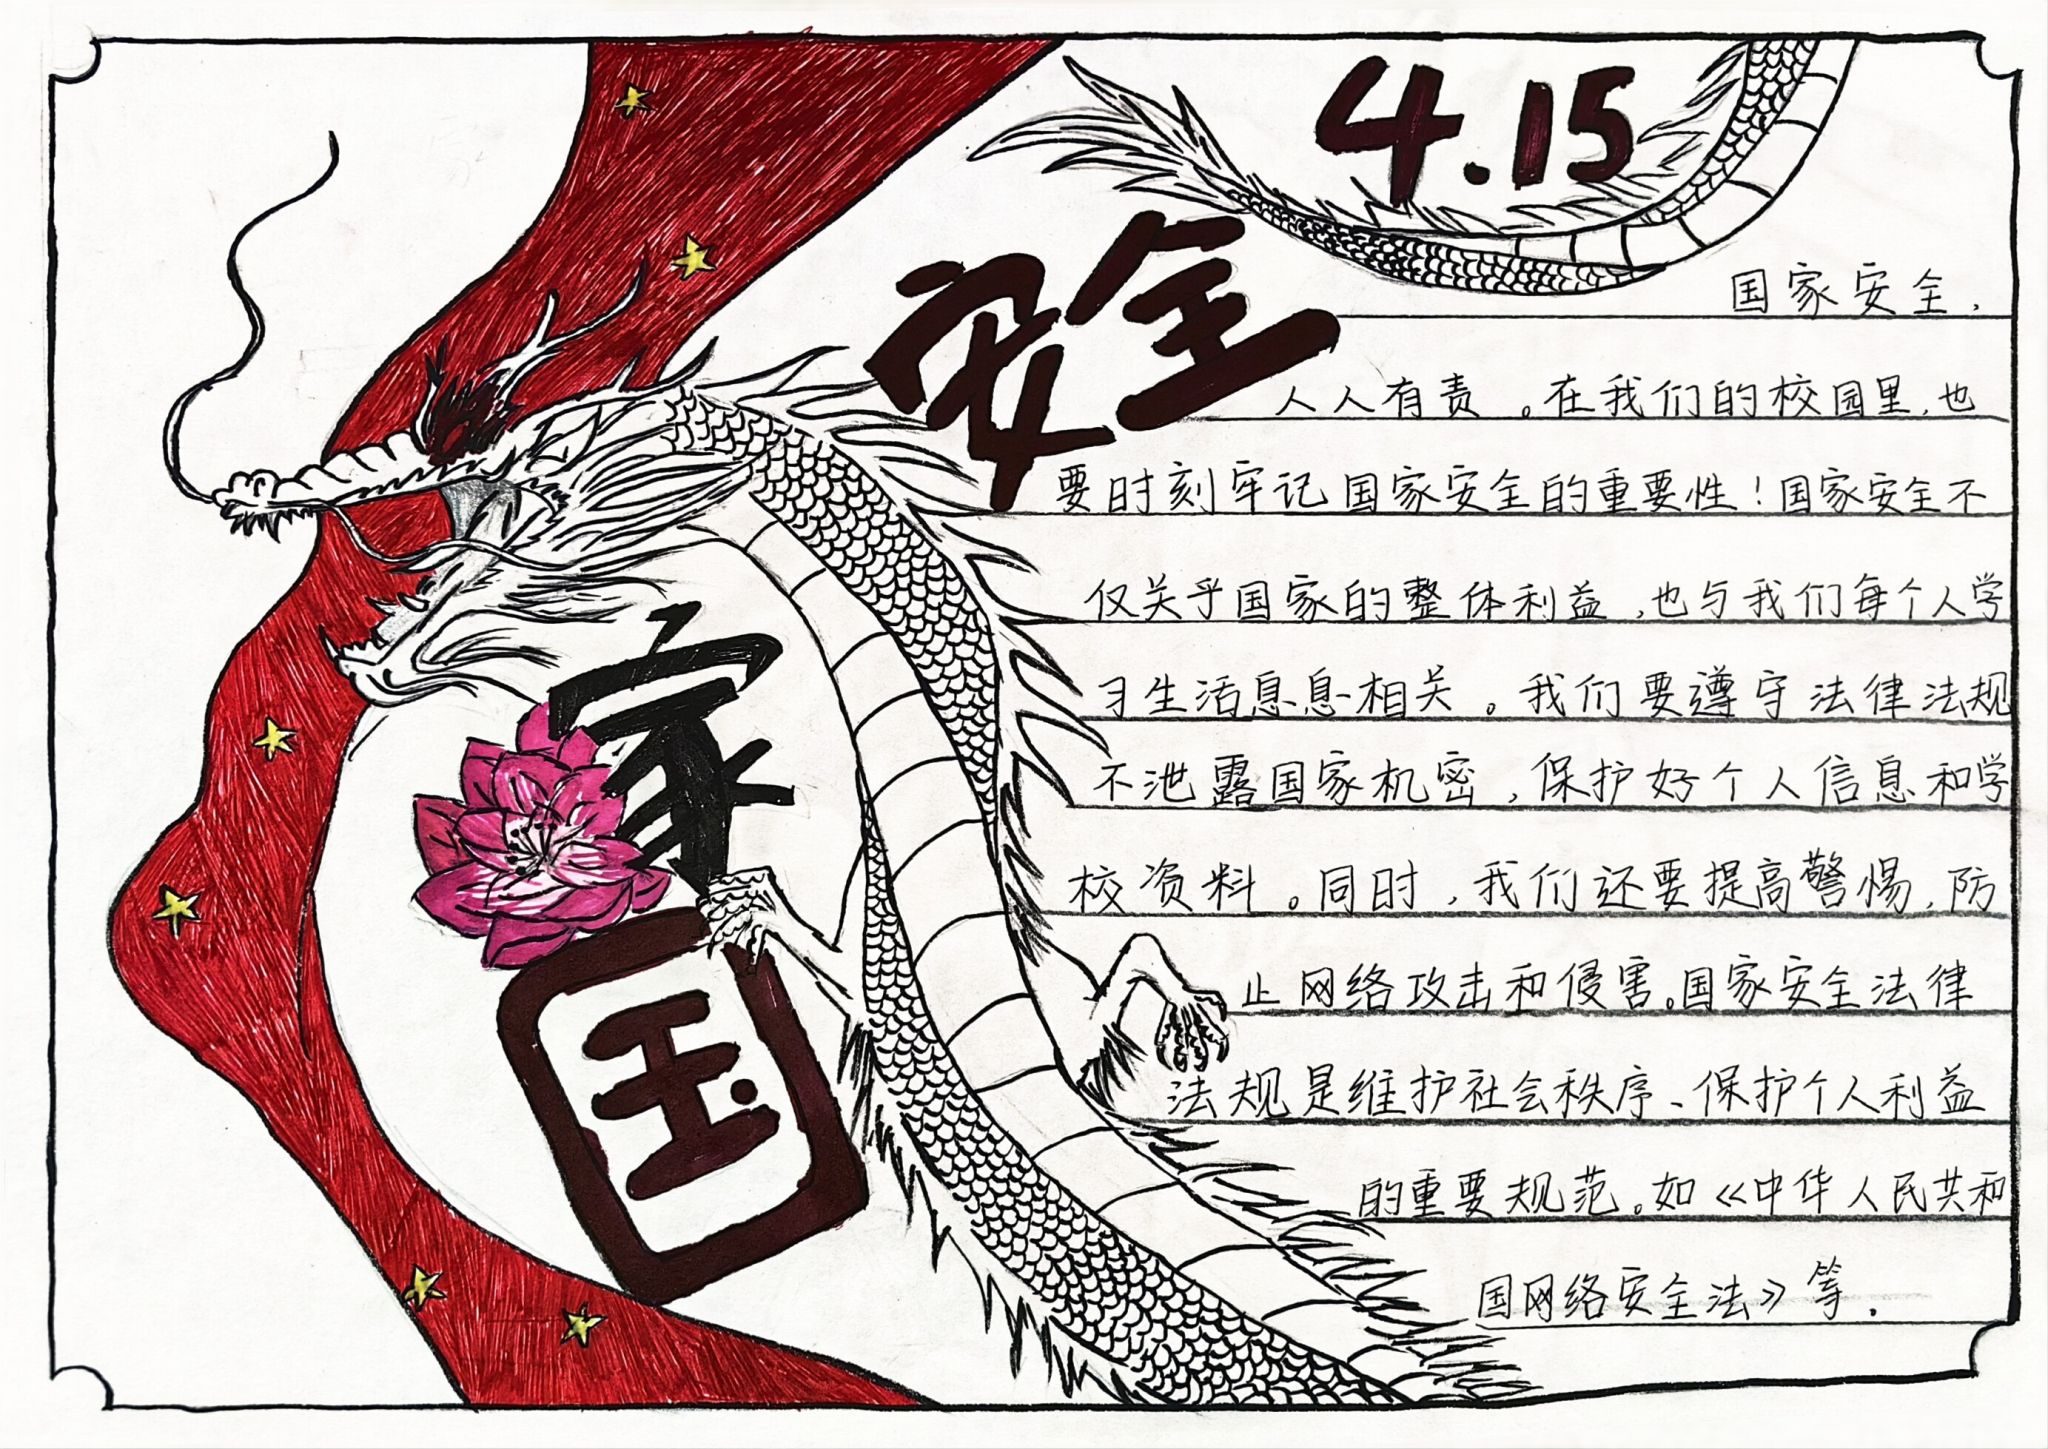 4.15
安全
家
国
国家安全,
人人有责。在我们的校园里,也
要时刻牢记国家安全的重要性!国家安全不
仅关乎国家的整体利益,也与我们每个人学
习生活息息相关。我们要遵守法律法规
不泄露国家机密,保护好个人信息和学
校资料。同时,我们还要提高警惕,防
止网络攻击和侵害。国家安全法律
法规是维护社会秩序、保护个人利益
的重要规范。如《中华人民共和
国网络安全法》等.